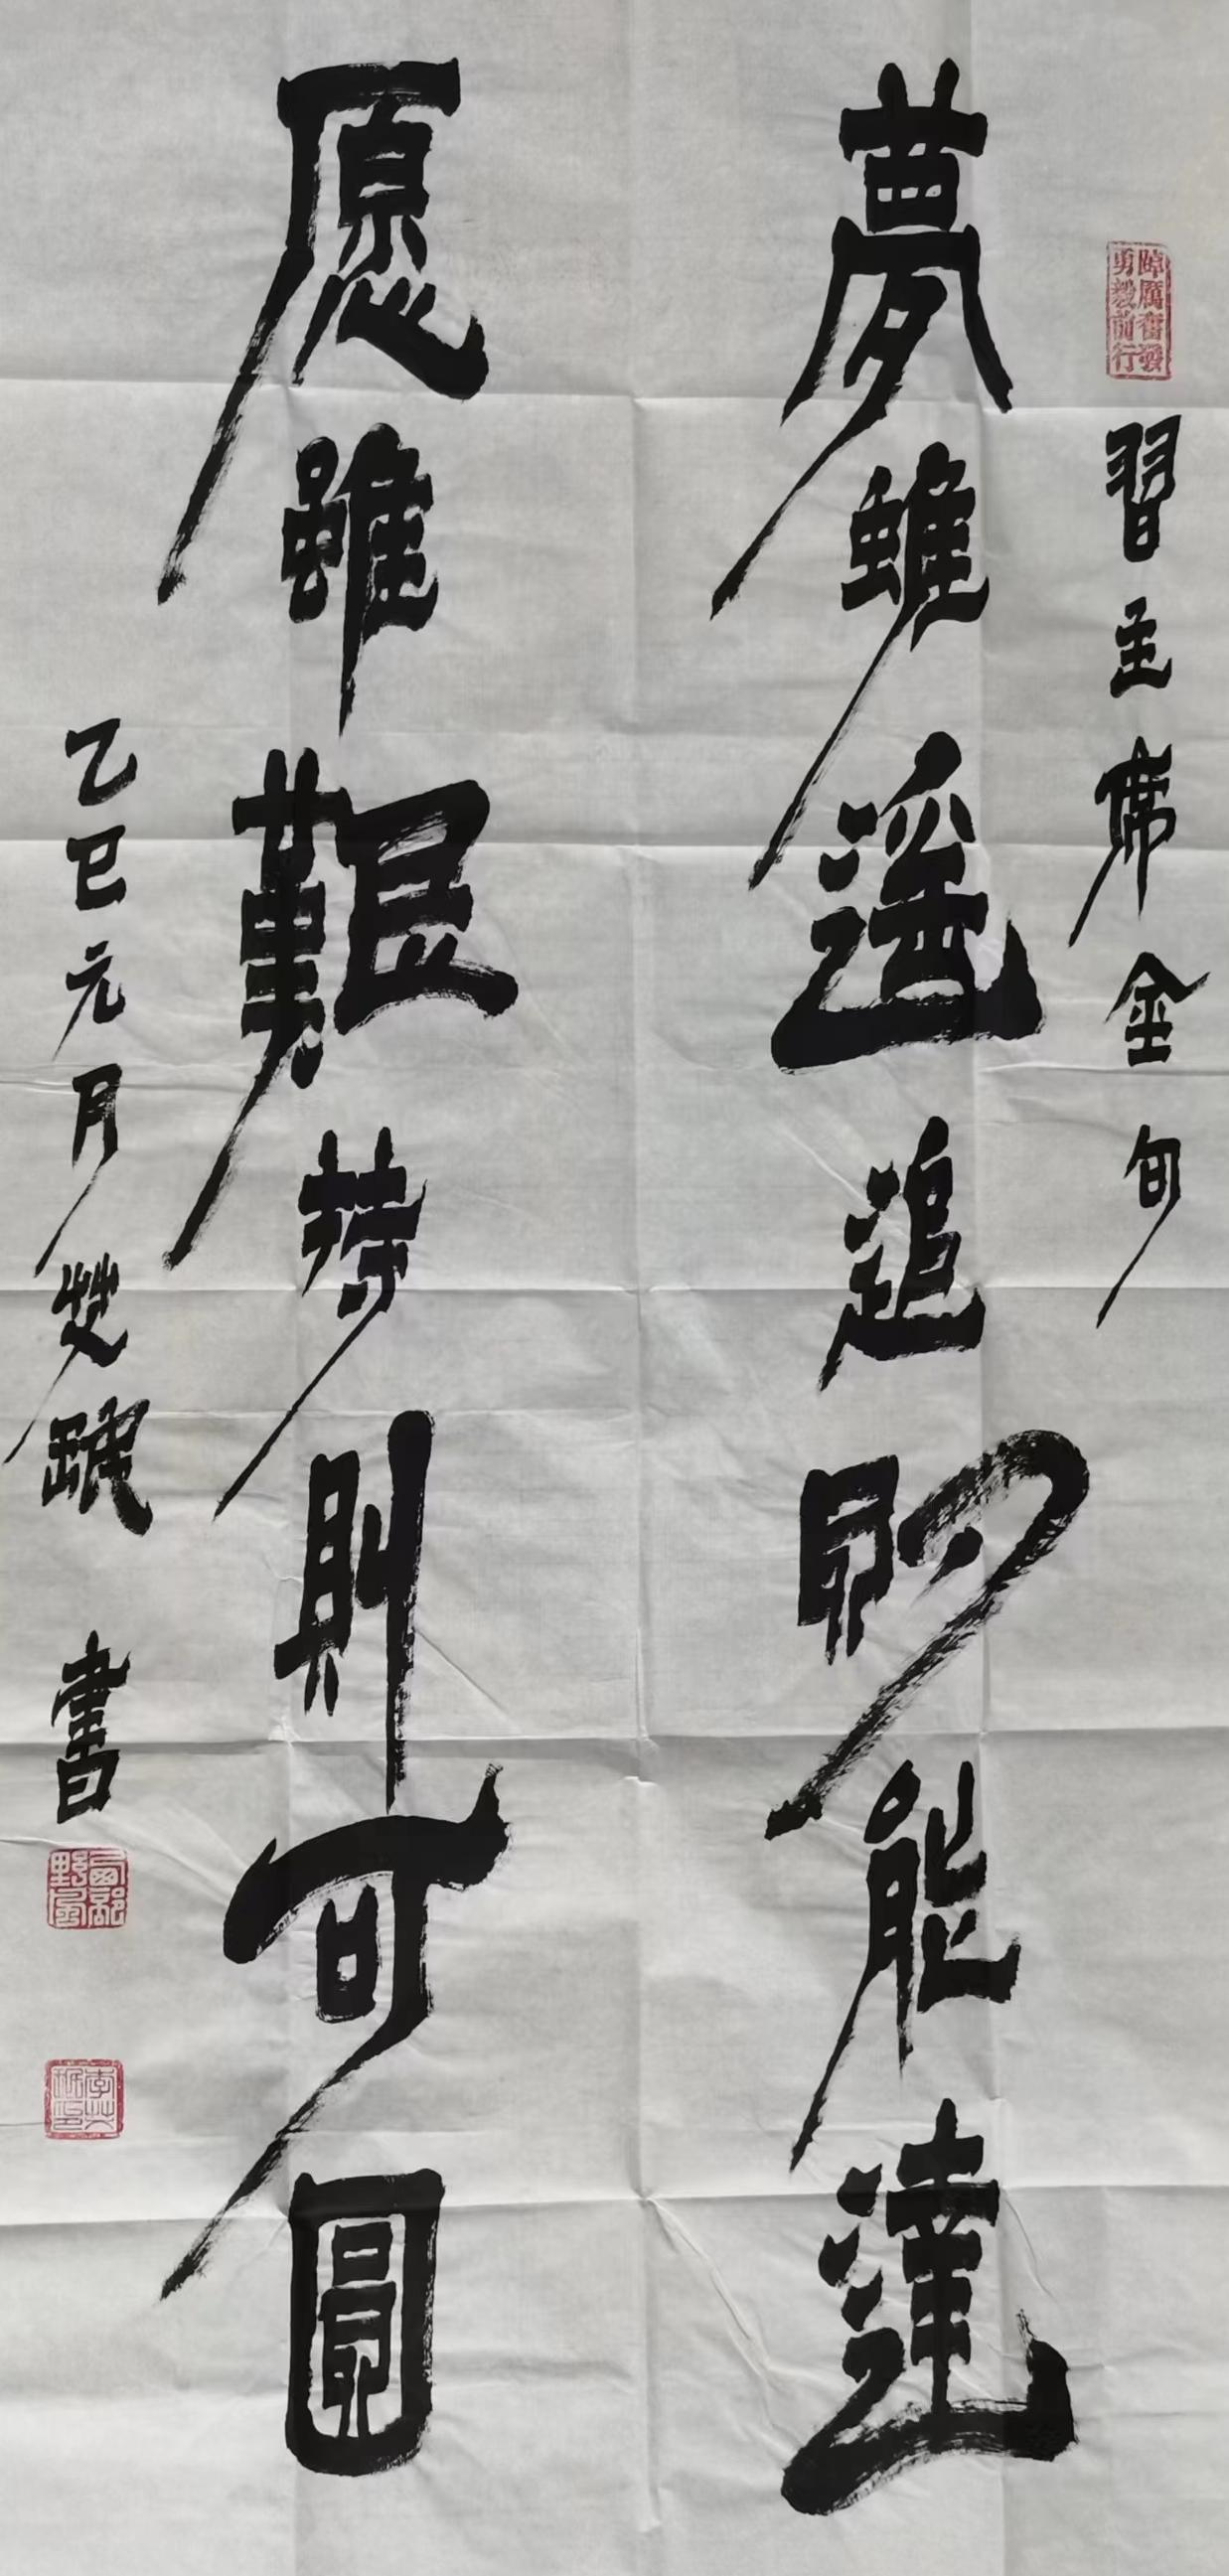 踔厲奮發
勇毅前行
習主席金句
夢雖遥追則能達
愿雖艱持則可圓
乙巳元月
書